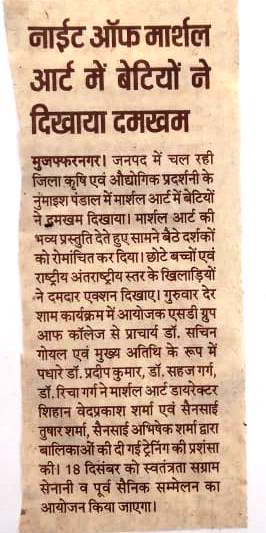 नाईट ऑफ मार्शल
आर्ट में बेटियों ने
दिखाया दमखम
मुजफ्फरनगर। जनपद में चल रही
जिला कृषि एवं औद्योगिक प्रदर्शनी के
नुमाइश पंडाल में मार्शल आर्ट में बेटियों
ने दमखम दिखाया। मार्शल आर्ट की
भव्य प्रस्तुति देते हुए सामने बैठे दर्शकों
को रोमांचित कर दिया। छोटे बच्चों एवं
राष्ट्रीय अंतराष्ट्रीय स्तर के खिलाड़ियों
ने दमदार एक्शन दिखाए। गुरुवार देर
शाम कार्यक्रम में आयोजक एसडी ग्रुप
आफ कॉलेज से प्राचार्य डॉ. सचिन
गोयल एवं मुख्य अतिथि के रूप में
पधारे डॉ. प्रदीप कुमार, डॉ. सहज गर्ग,
डॉ. रिचा गर्ग ने मार्शल आर्ट डायरेक्टर
शिहान वेदप्रकाश शर्मा एवं सैनसाई
तुषार शर्मा, सैनसाई अभिषेक शर्मा द्वारा
बालिकाओं की दी गई ट्रेनिंग की प्रशंसा
की। 18 दिसंबर को स्वतंत्रता सग्राम
सेनानी व पूर्व सैनिक सम्मेलन का
आयोजन किया जाएगा।